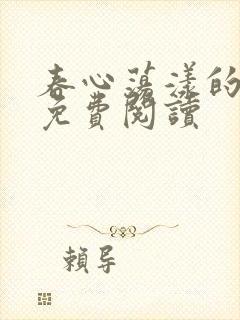 春心蕩漾的
免費閱讀
賴导